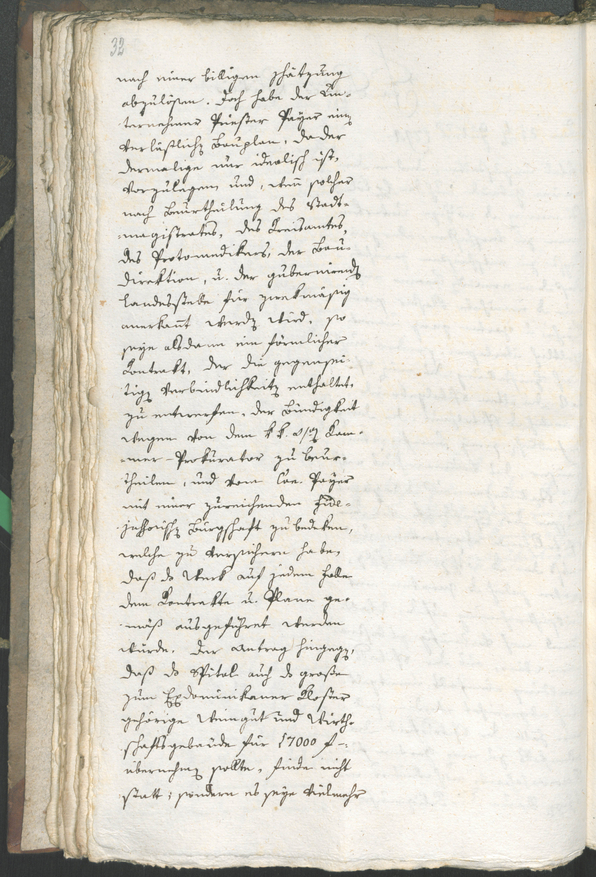 32
nach einer billigen Schätzung
abzulösen. Doch habe der Un-
ternehmer Priester Payer eine
verläßliche Bauplan, da der
dermalige nur idealisch ist,
vorzulegen und, wenn solcher
nach Beurtheilung des Stadt-
magistrates, des Creisamtes,
des Protomedikers, der Bau-
direktion, u. der gubernirend
Landesstelle für zwekmäsig
anerkant werden wird, so
seye alsdann ein förmlicher
Contrakt, der die gegensei-
tige Verbindlichkeit enthaltet,
zu entwerfen, der Bündigkeit
wegen von dem k. k. Kam-
mer-Prokurator zu beur-
theilen, und vom Payer
mit einer zureichenden Fide-
jussorische Bürgschaft zu bedeken,
welche zu versichern habe,
daß das Werk auf jedem Falle
dem Contrakte u. Plane ge-
mäß ausgeführet werden
würde. Der Antrag hingegen,
daß das Spital auch das große
zum Exdominikaner Kloster
gehörige Weingut und Wirth-
schaftsgebäude für 17000 f
übernehmen sollte, finde nicht
statt; sondern es seye vielmehr